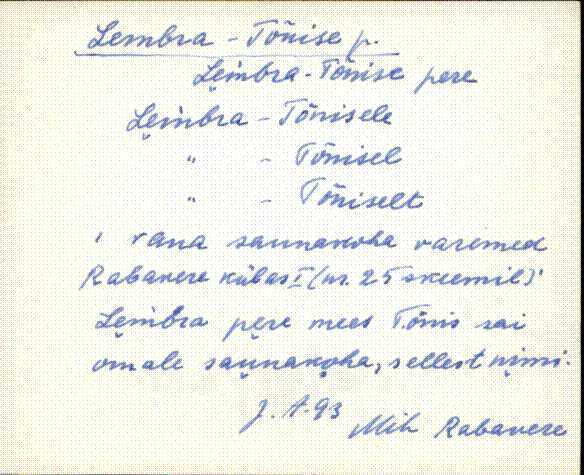 Lembra - Tõnise p.
Lembra - Tõnise pere
Lembra - Tõnisele
" - Tõnisel
" - Tõniselt
' vana saunakoha varemed
Rabavere külas I (nr. 25 skeemil)'
Lembra pere mees Tõnis sai
omale saunakoha, sellest nimi.
J. A-93
Mih Rabavere